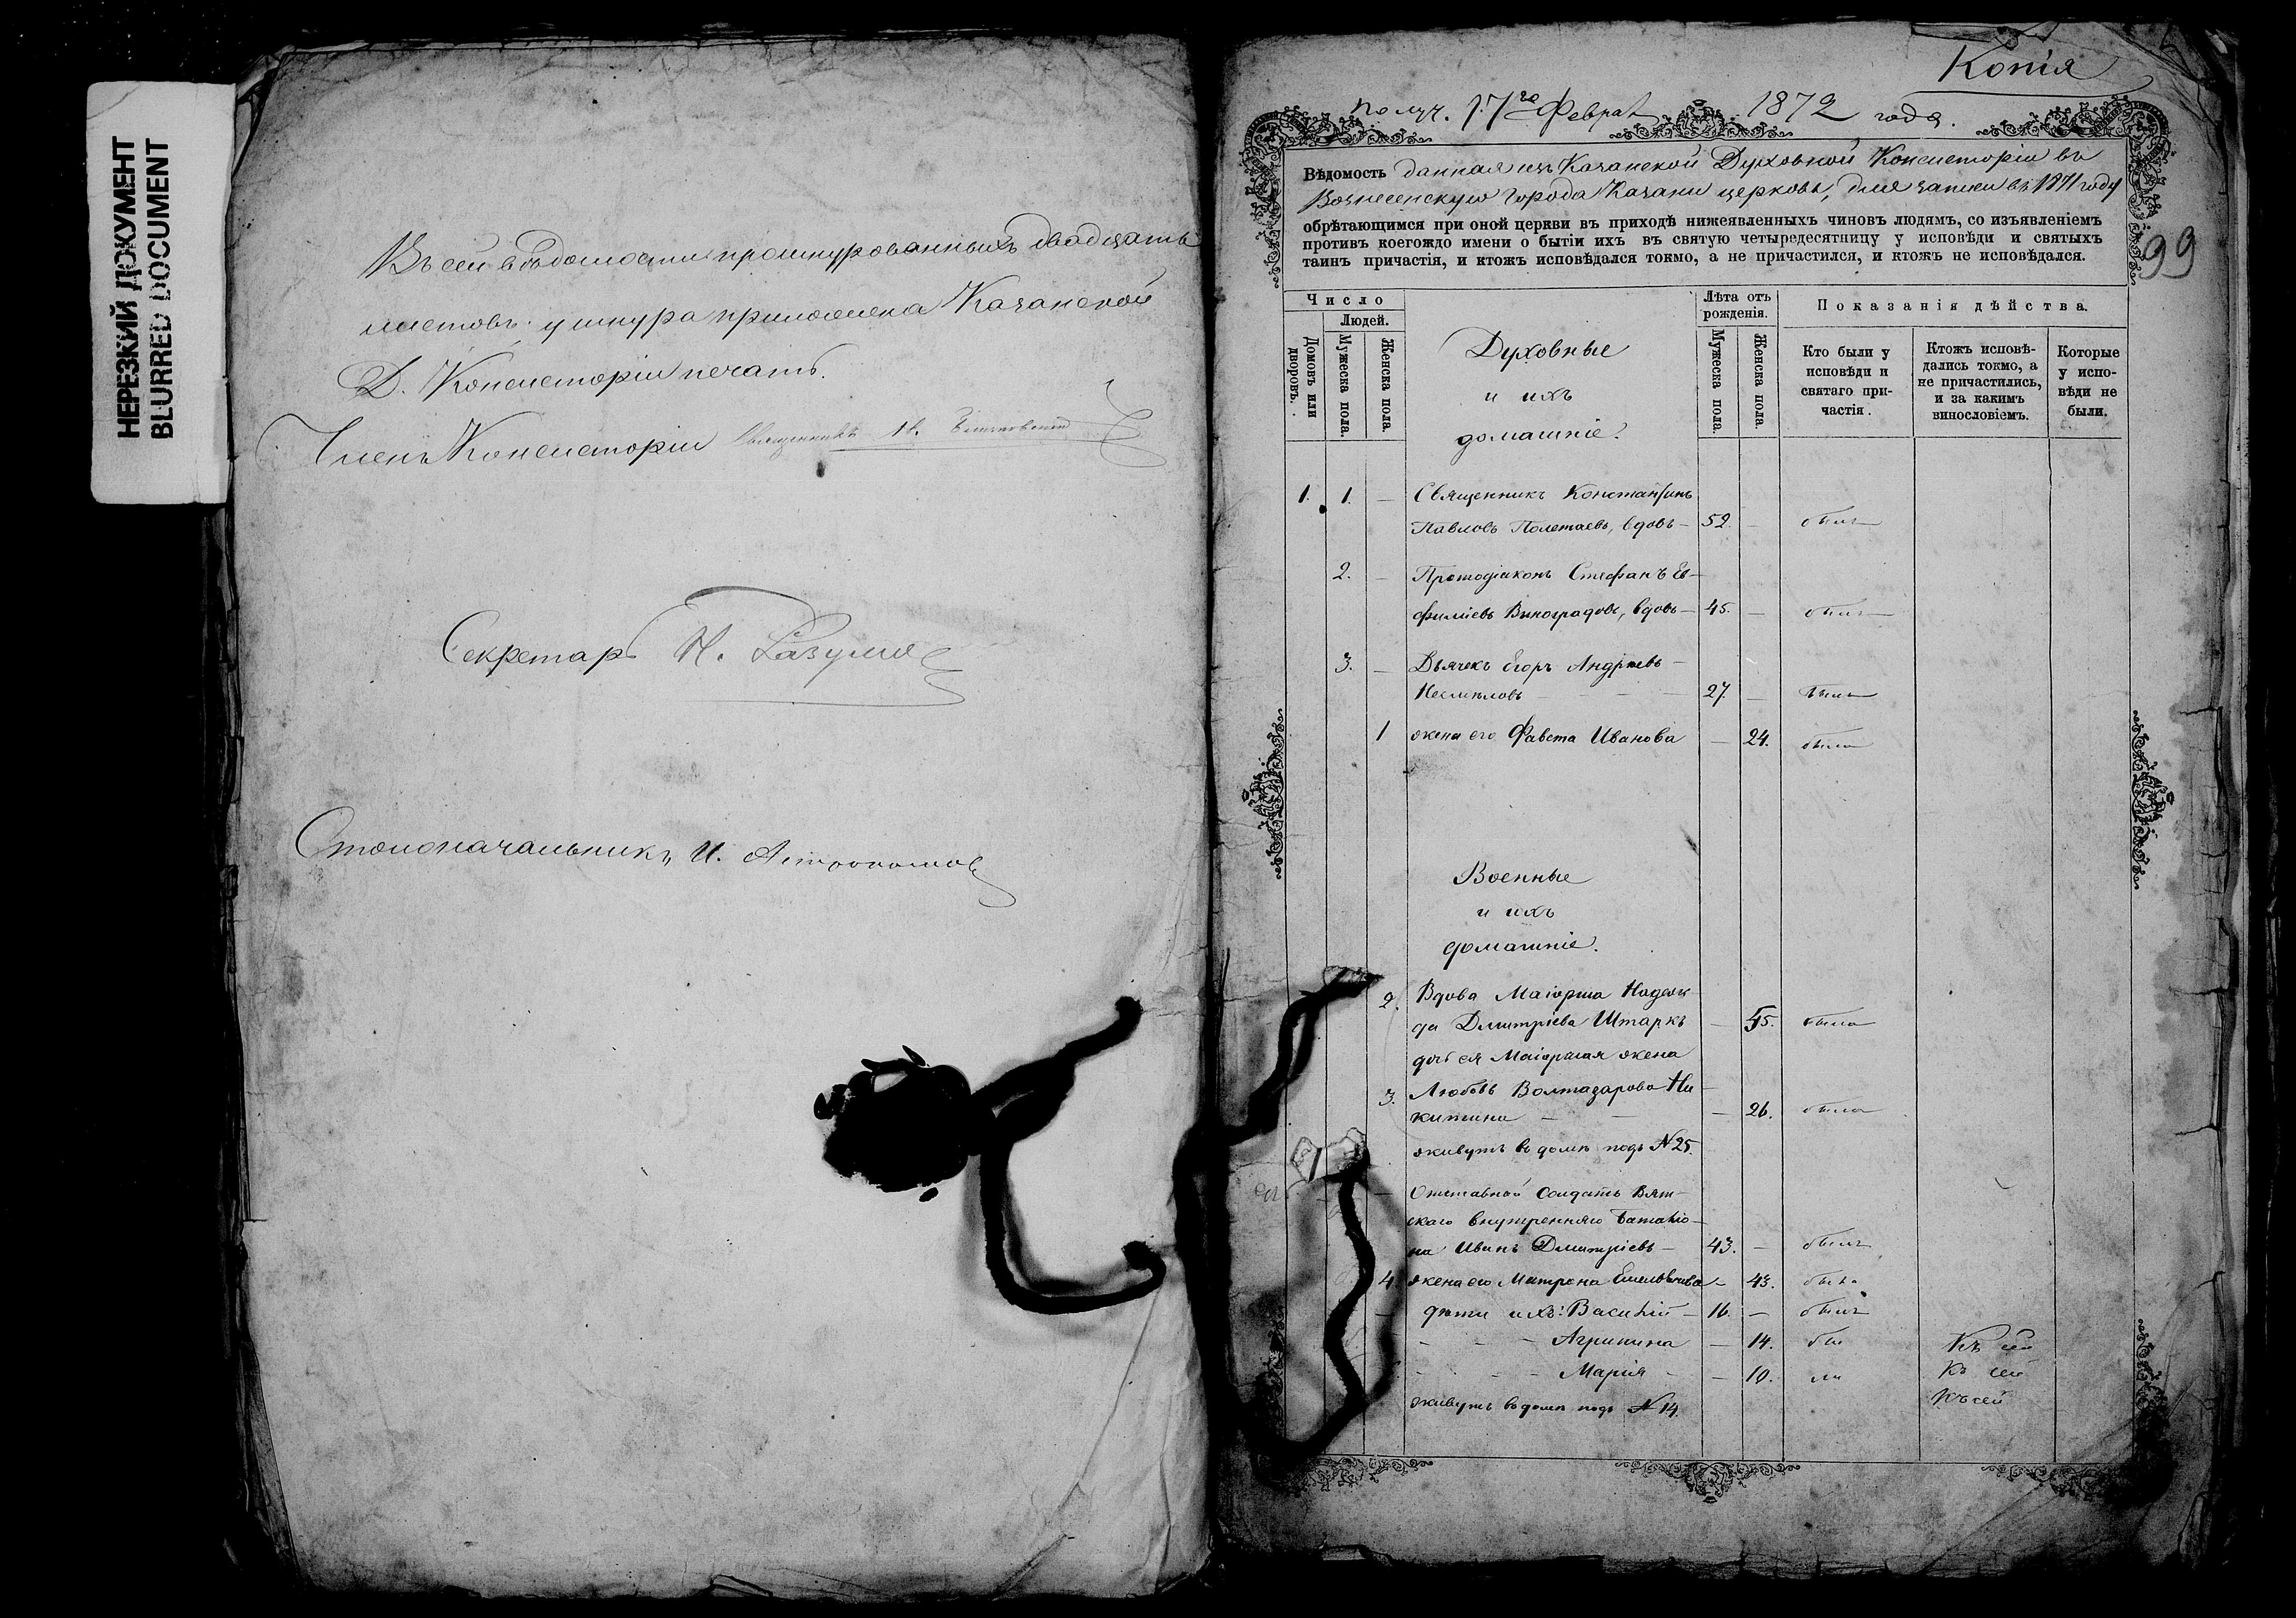 НЕРЕЗКИЙ ДОКУМЕНТ
BLURRED DOCUMENT
Въ сей вѣдомости прошнурованныхъ двадцать
листовъ; у шнура приложена Казанской
Д. Консисторіи печать.
Членъ Консисторіи Священникъ
Секретарь Н. Разумов
Столоначальникъ И. Астрономов
Копія
получ. 17го Феврал 1872 года.
99
Вѣдомость данная изъ Казанской Духовной Консисторіи въ
Вознесенскую города Казани церковь, для записи въ 1871 году
обрѣтающимся при оной церкви въ приходѣ нижеявленныхъ чиновъ людямъ, со изъявленіемъ
противъ коегождо имени о бытіи ихъ въ святую четыредесятницу у исповѣди и святыхъ
таинъ причастія, и ктожъ исповѣдался токмо, а не причастился, и ктожъ не исповѣдался.
Число
Людей.
Домовъ или дворовъ.
Мужеска пола.
Женска пола.
Духовные
и ихъ
домашніе.
Лѣта отъ рожденія.
Мужеска пола.
Женска пола.
Показанія дѣйства.
Кто были у исповѣди и святаго причастія.
Ктожъ исповѣдались токмо, а не причастились, и за какимъ винословіемъ.
Которые у исповѣди не были.
1. 1. — Священникъ Константинъ
Павловъ Полетаевъ, вдовъ — 52 — былъ
2. — Протодіаконъ Стефанъ Ев-
филіевъ Виноградовъ, вдовъ — 45. — былъ
3. — Дьячекъ Егоръ Андреевъ —
Несмѣловъ — — — 27. — былъ
1 жена его Фавста Иванова — 24. была
Военные
и ихъ
домашніе.
2. Вдова Маіорша Надеж-
да Дмитріева Штаркъ — 55. была
дочь ея Маіорская жена
3. Любовь Волтазарова Ни-
китина — — — 26. была
живутъ въ домѣ подъ №25.
— Отставной Солдатъ Вят-
скаго внутренняго баталіо-
на Иванъ Дмитріевъ — 43. — былъ
4. жена его Матрона Емельянова — 43. была
— дѣти ихъ: Василій — 16. — былъ
- - - Агрипина — 14. бы Къ сей
- - - Марія - — 10. ли Къ сей
живутъ въ домѣ подъ №14. Къ сей